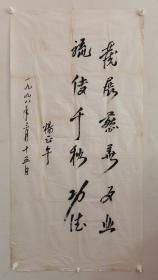 發展慈善事业
流传千秋功德
杨正午
一九九八年三月十五日